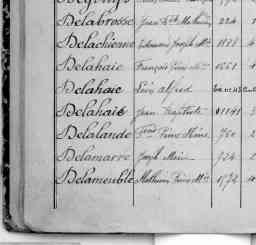 Delabrosse Jean Bte Mathurin 224 1
Delachienne Edouard Joseph Mie 1828 4
Delahaie François Pierre Mie 1661 4
Delahaie Léon Alfred
Delahaie Jean Baptiste 1141 3
Delalande Pierre 760 2
Delamarre Joseph Marie 724 2
Delameuble Mathurin Pierre Mie 1574 4